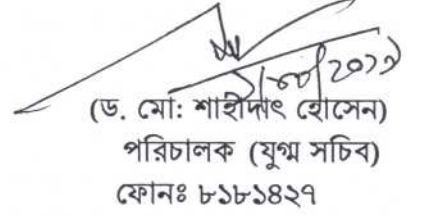 (ড. মো: শাহীদাৎ হোসেন)
পরিচালক (যুগ্ম সচিব)
ফোনঃ ৮১৮১৪২৭